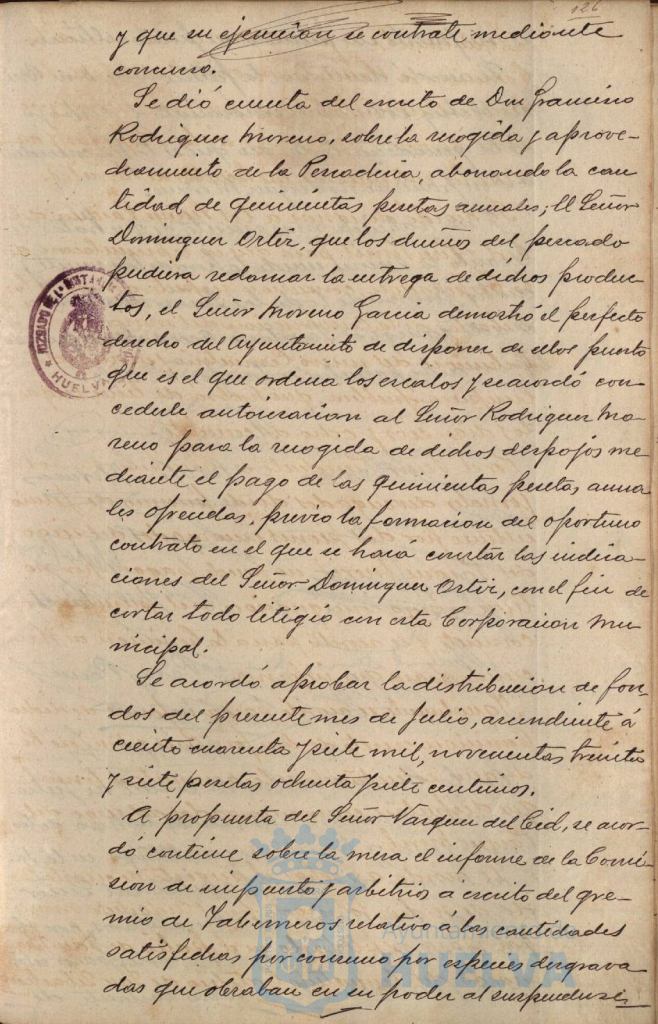 126
y que su ejecución se contrate mediante
concurso.
Se dió cuenta del escrito de Don Francisco
Rodriguez Moreno, sobre la recogida y aprove-
chamiento de la Pescaderia, abonando la can
tidad de quinientas pesetas anuales; el Señor
Dominguez Ortiz, que los dueños del pescado
pudiera reclamar la entrega de dichos produc-
tos, el Señor Moreno Garcia demostró el perfecto
derecho del Ayuntamiento de disponer de ellos puesto
que es el que ordena los escalos y se acordó con-
cederle autorizacion al Señor Rodriguez Mo-
reno para la recogida de dichos despojos me
diante el pago de las quinientas pesetas anua
les ofrecidas, previo la formacion del oportuno
contrato en el que se hará constar las indica-
ciones del Señor Dominguez Ortiz, con el fin de
cortar todo litigio con esta Corporacion Mu-
nicipal.
Se acordó aprobar la distribucion de fon-
dos del presente mes de Julio, ascendiente á
ciento cuarenta y siete mil, novecientas treinta
y siete pesetas ochenta y siete centimos.
A propuesta del Señor Vazquez del Cid, se acor-
dó continue sobre la mesa el informe de la Comi-
sion de impuesto y arbitrios a escrito del gre-
mio de Taberneros relativo á las cantidades
satisfechas por consumo por especies desgrava
das que obraban en su poder al suspenderse
JUZGADO DE 1ª INSTANCIA
HUELVA
Ayuntamiento
HUELVA